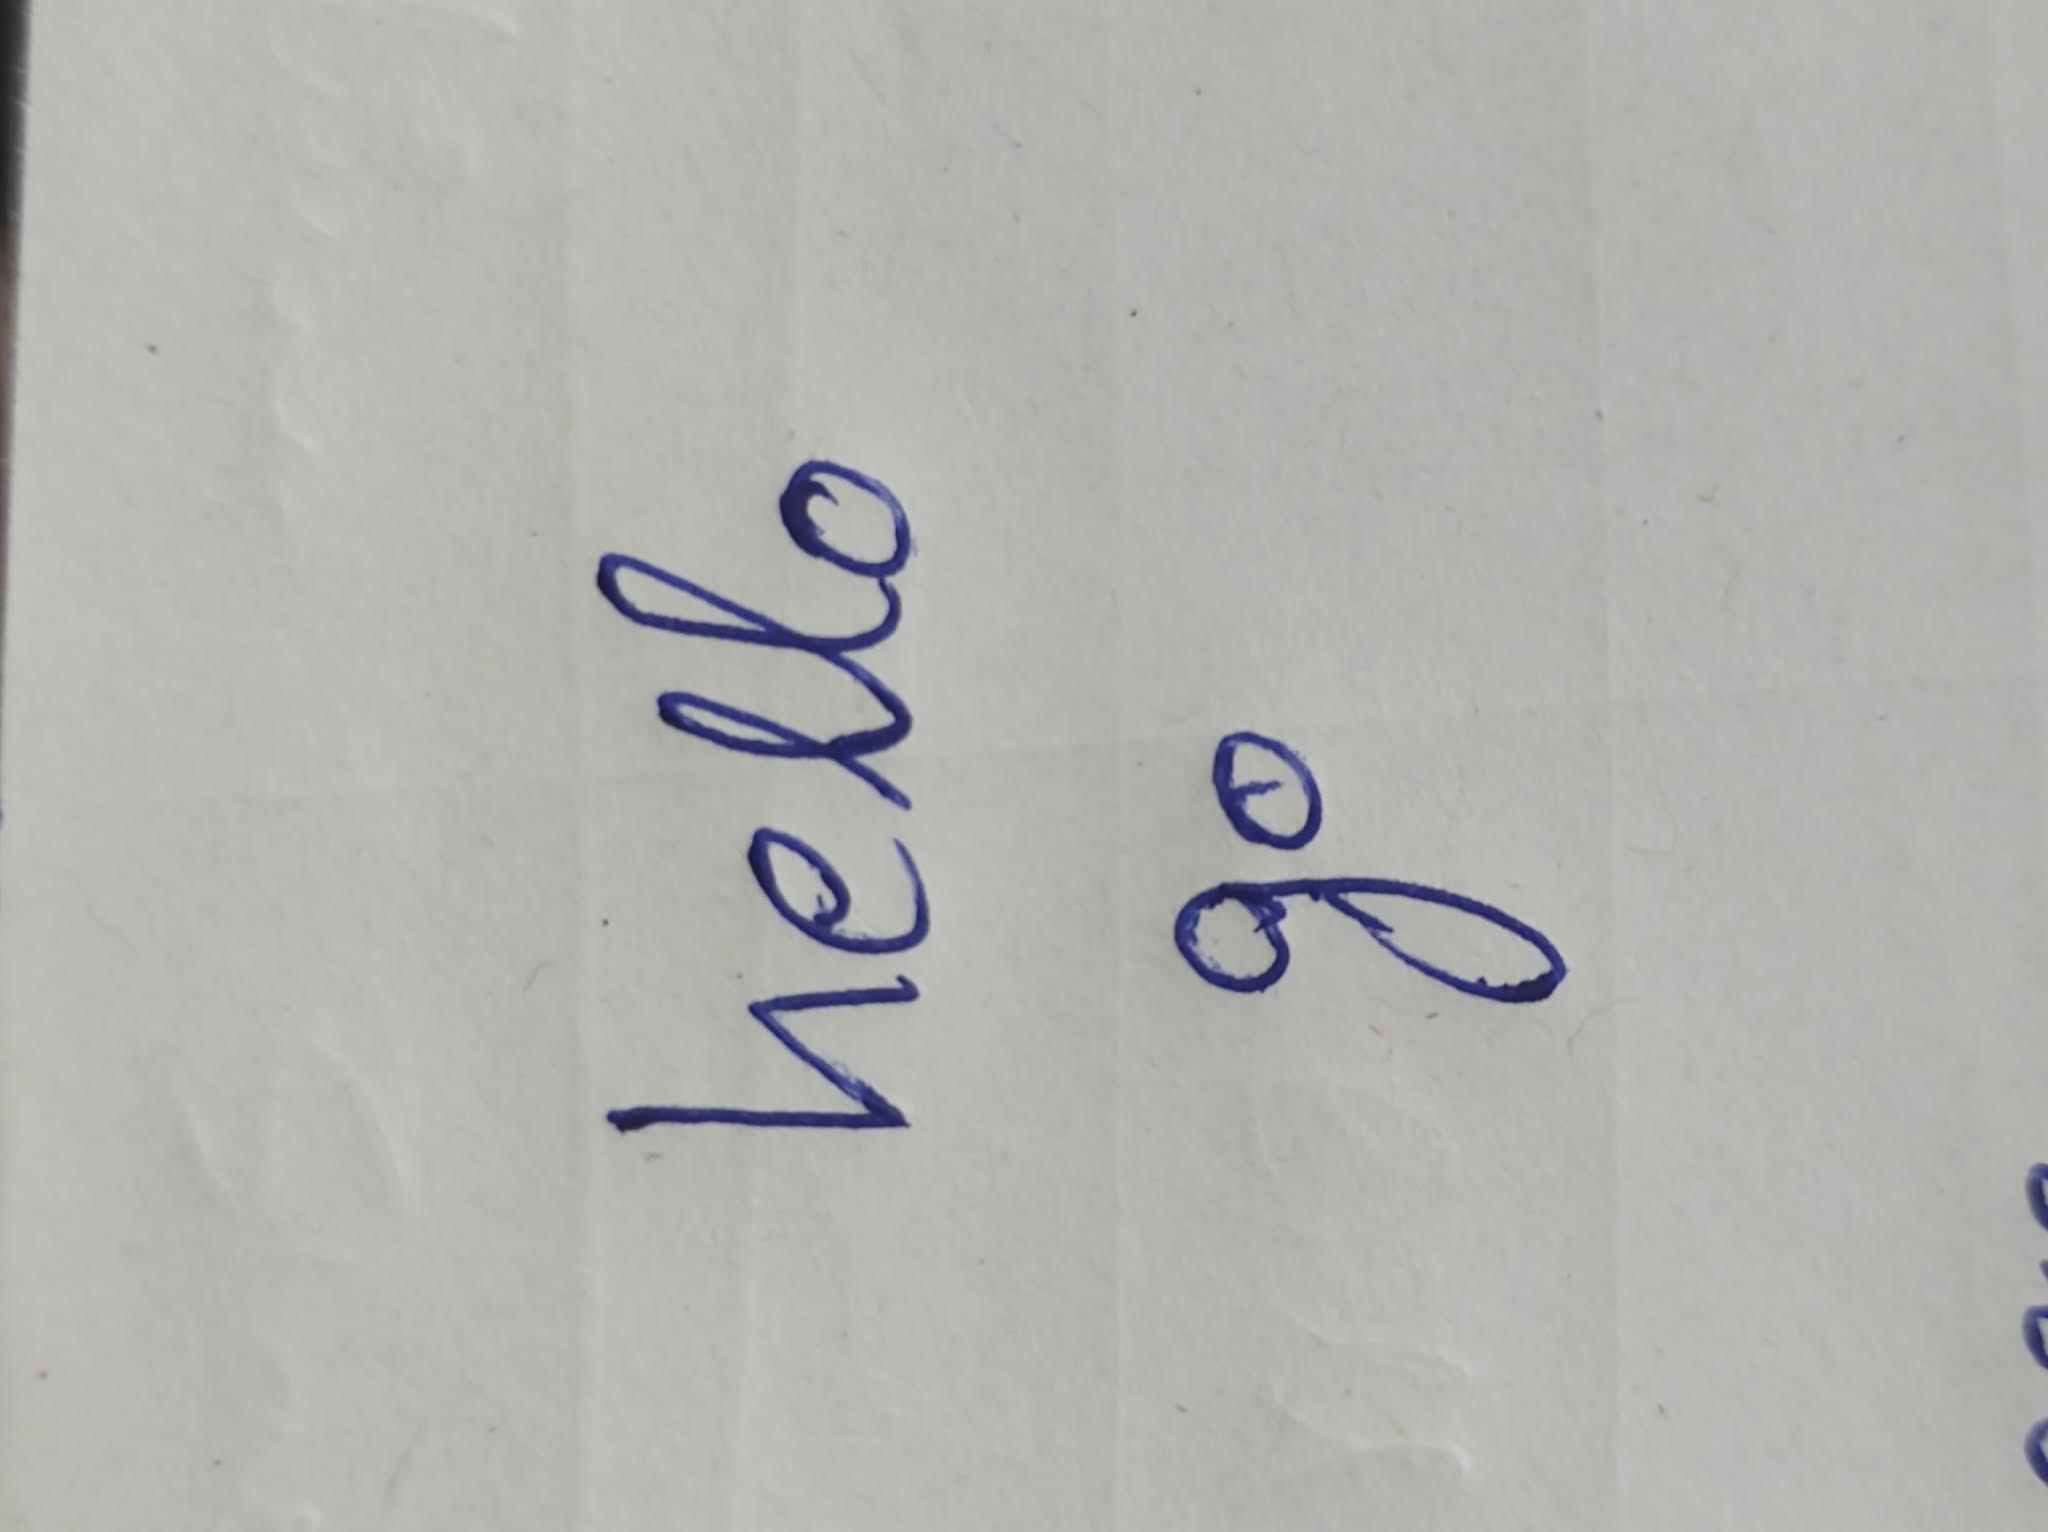 hello
go